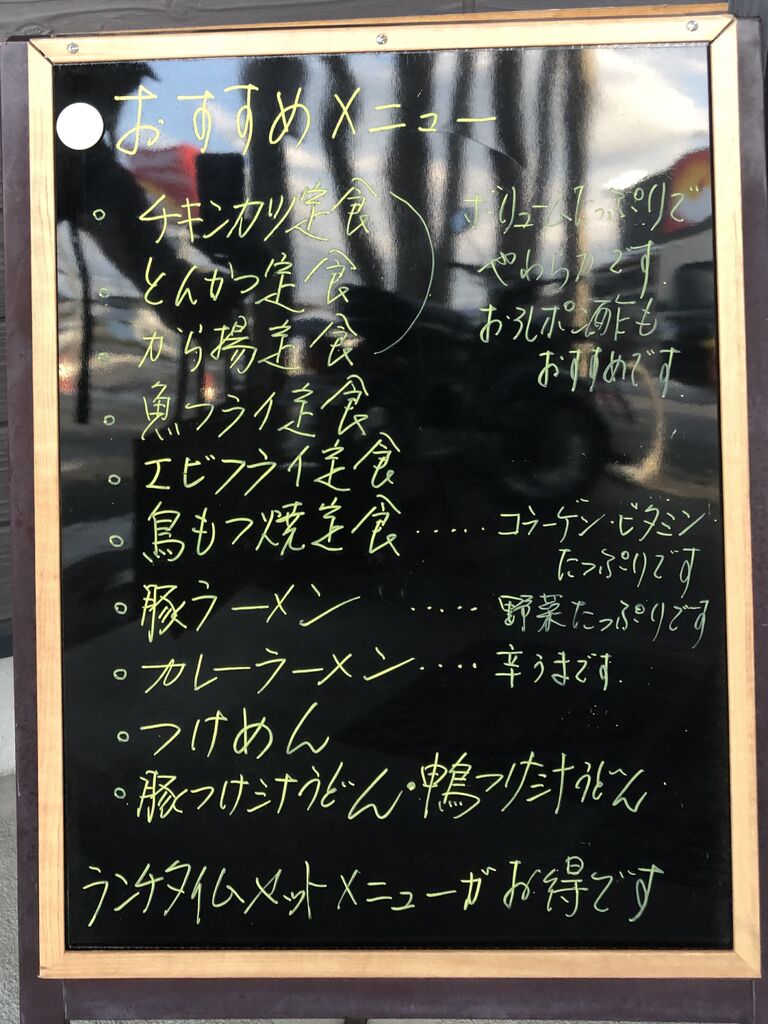 おすすめメニュー
。チキンカツ定食
。とんかつ定食
。から揚定食
ボリュームたっぷりで
やわらかです。
おろしポン酢も
おすすめです
。魚フライ定食
。エビフライ定食
。鳥もつ焼定食 ‥‥‥ コラーゲン・ビタミン
たっぷりです
。豚ラーメン ‥‥‥ 野菜たっぷりです
。カレーラーメン ‥‥ 辛うまです
。つけめん
。豚つけ汁うどん・鴨つけ汁うどん
ランチタイムセットメニューがお得です